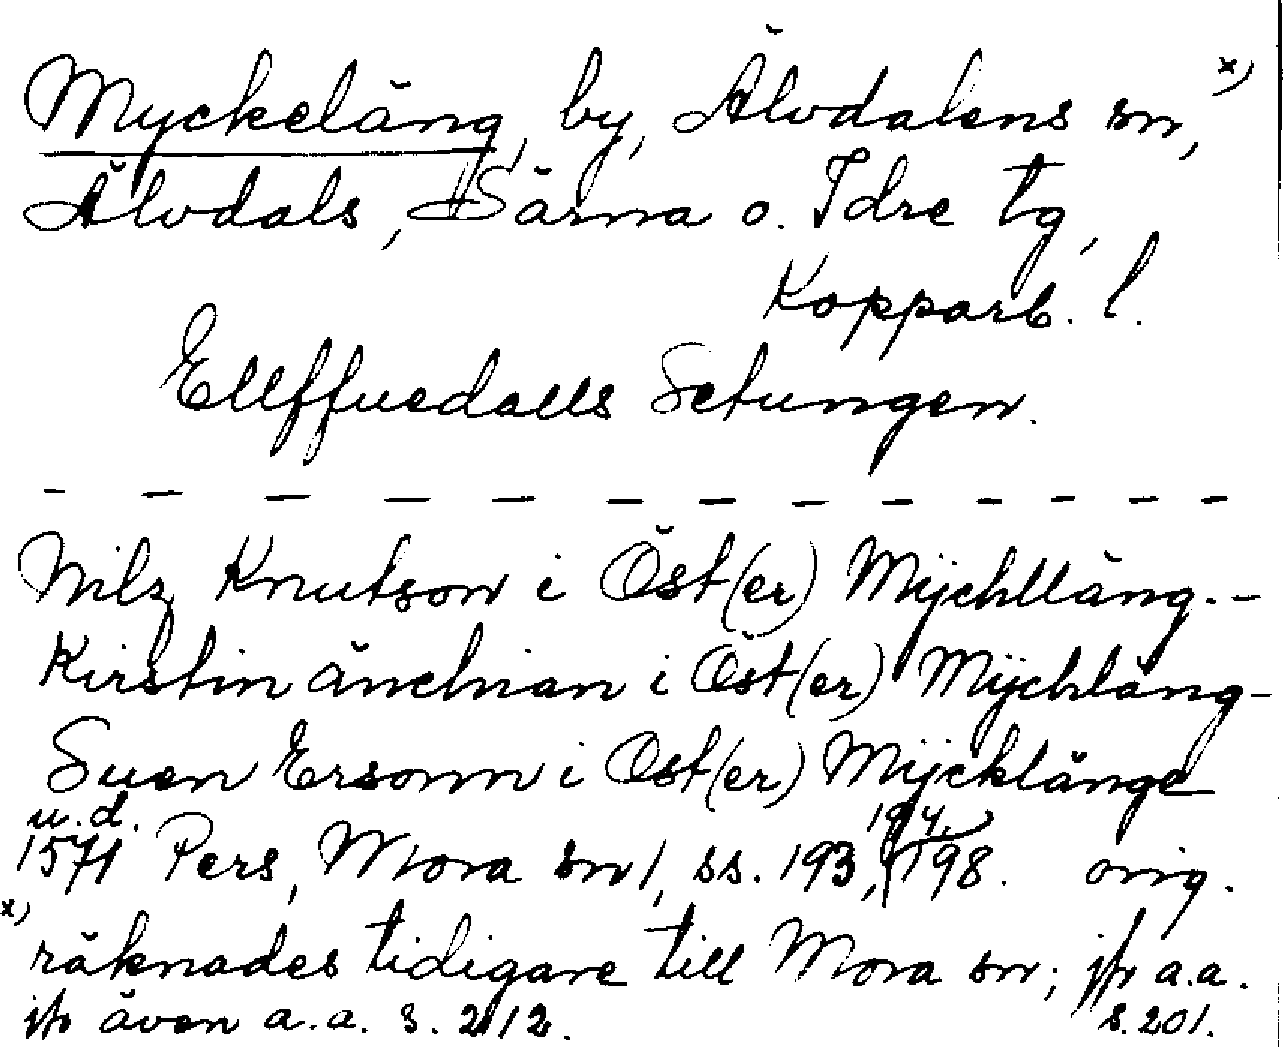 Myckeläng, by, Älvdalens sn, x)
Älvdals, Särna o. Idre tg,
Kopparb. l.
Ellffuedalls Setungen.
- - - - - - - - - - - - - -
Nilz Knutson i Öst(er) Mÿchlläng. -
Kirstin änchian i Öst(er) Mÿchläng -
Suen Ersonn i Öst(er) Mÿcklänge
u.d.
1571 Pers, Mora sn 1, ss. 193, 194, 198. orig.
x) räknades tidigare till Mora sn; jfr a.a.
jfr även a.a. s. 212. s. 201.